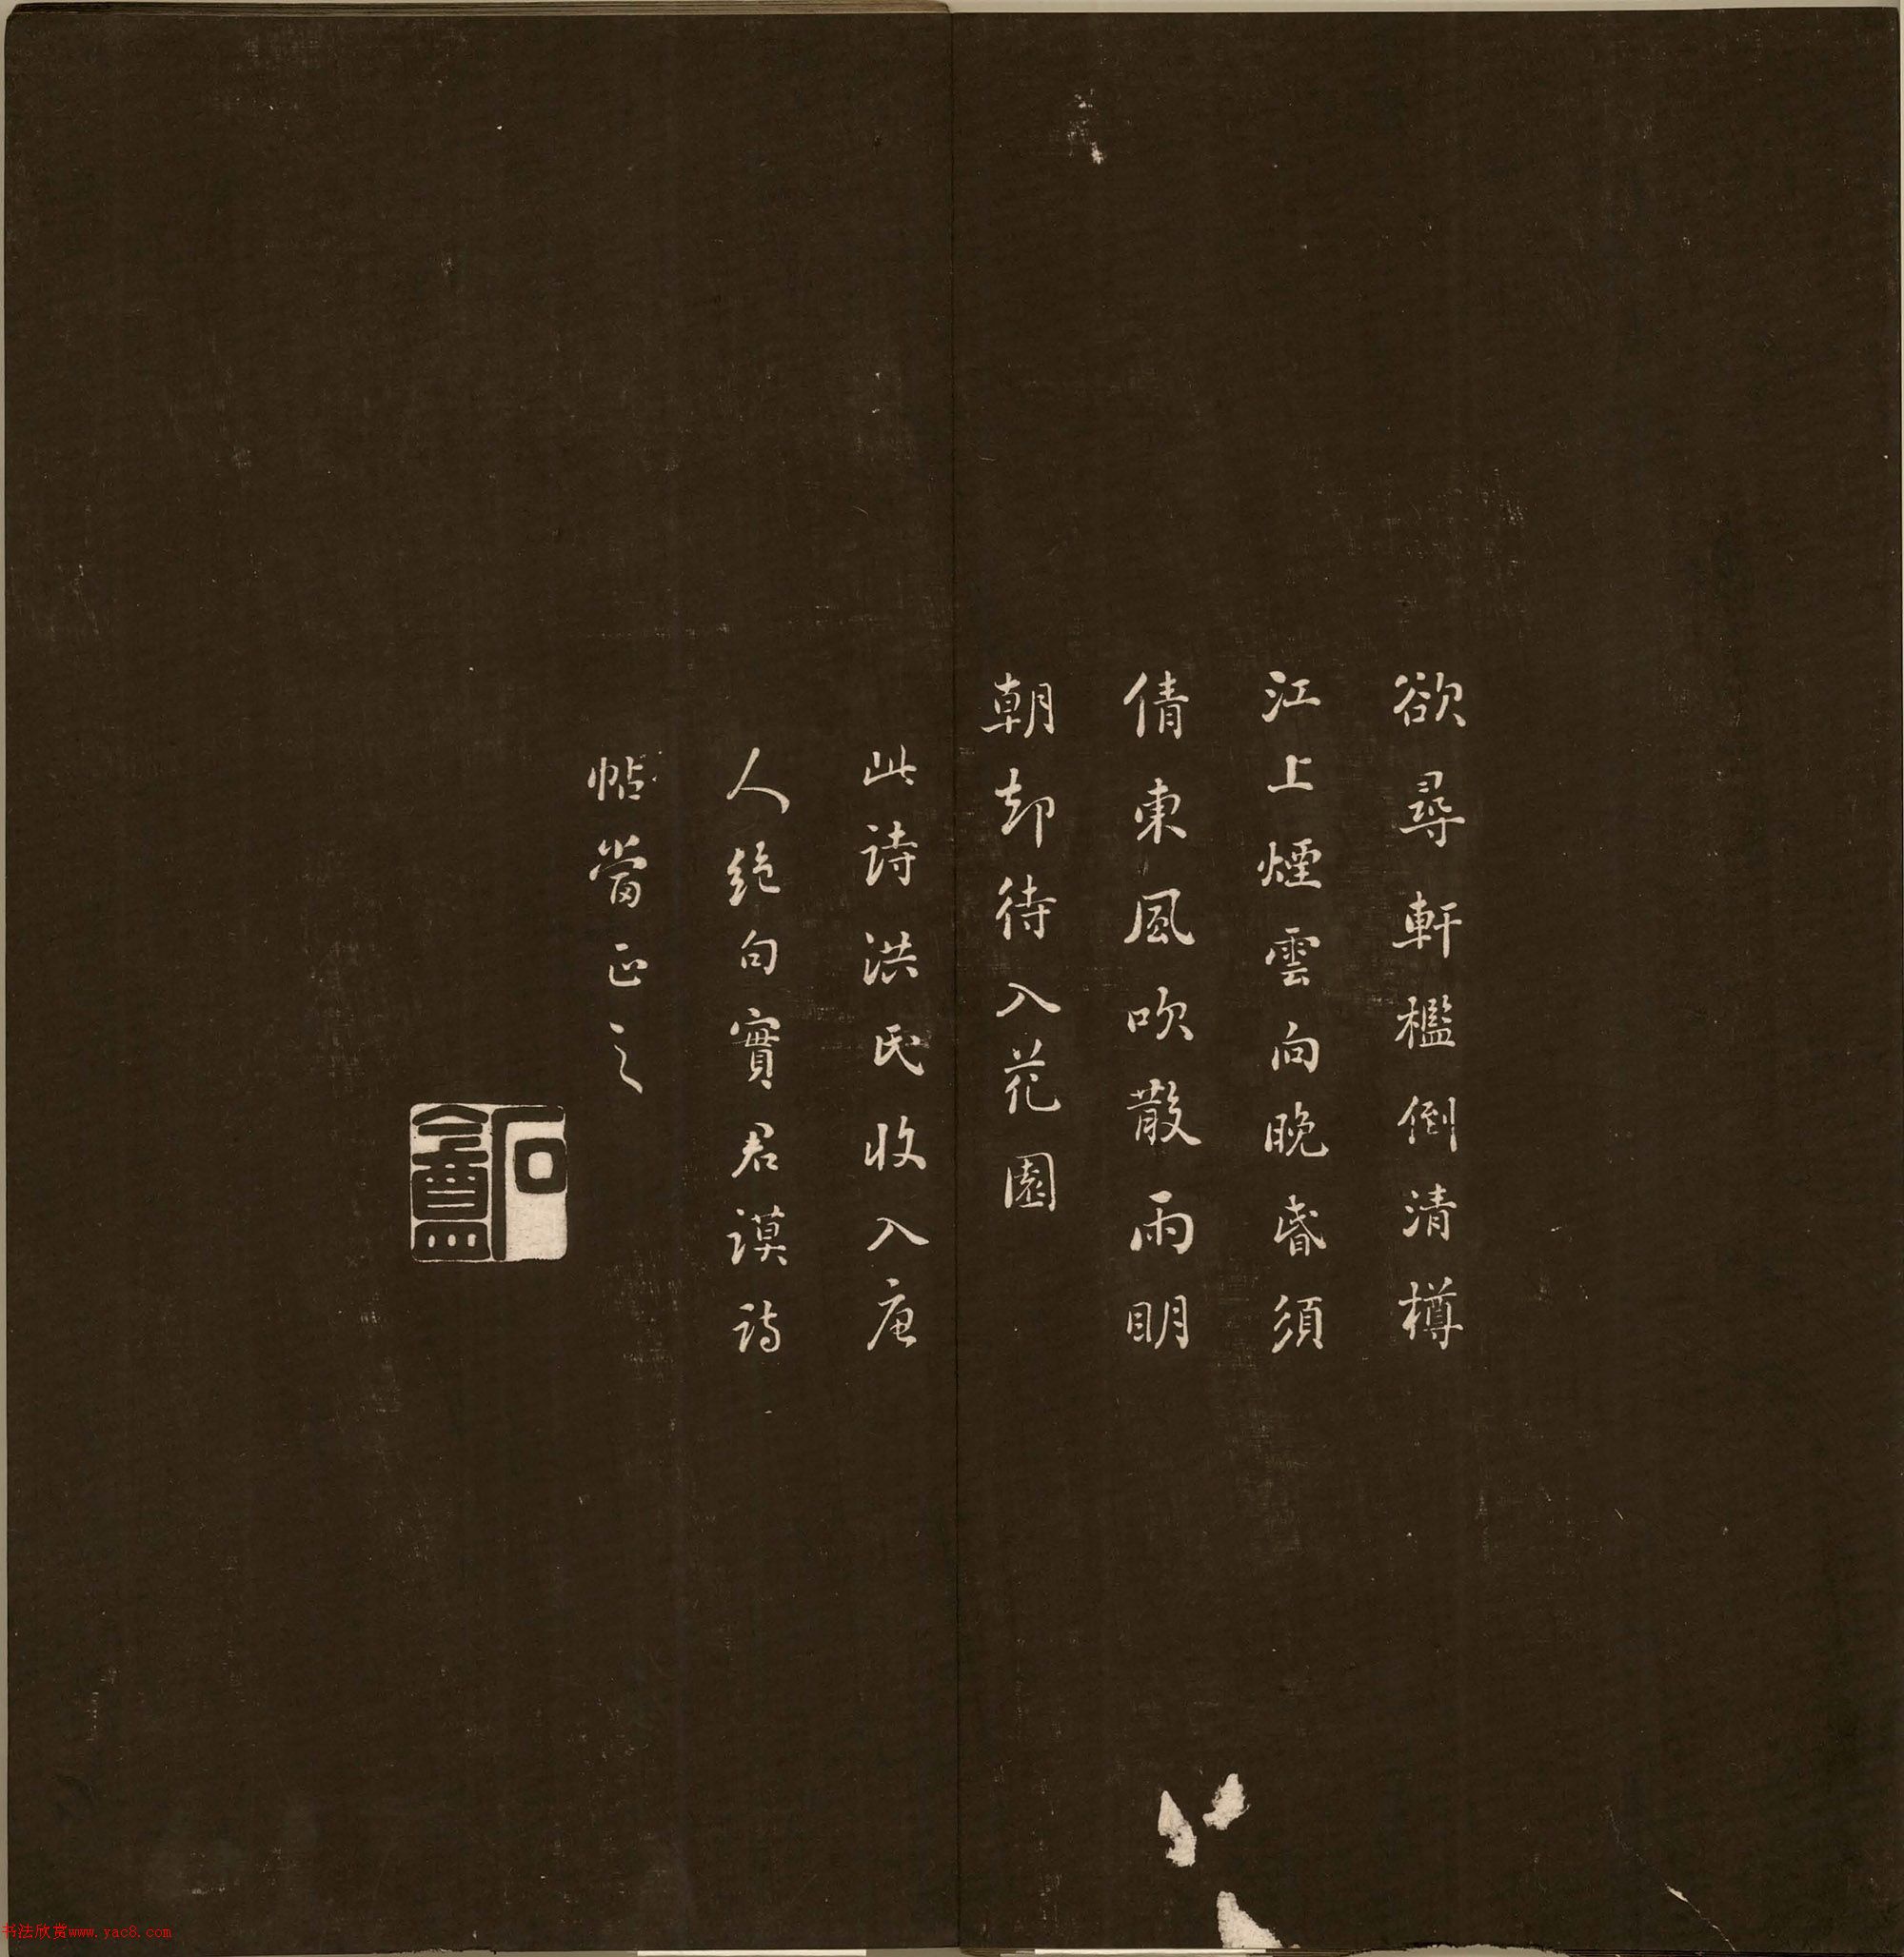 欲尋軒檻倒清樽
江上煙雲向晚昏須
倩東風吹散雨明
朝却待入花園
此詩洪氏收入唐
人絕句實君謨詩
帖當正之
石盦
书法欣赏www.yac8.com